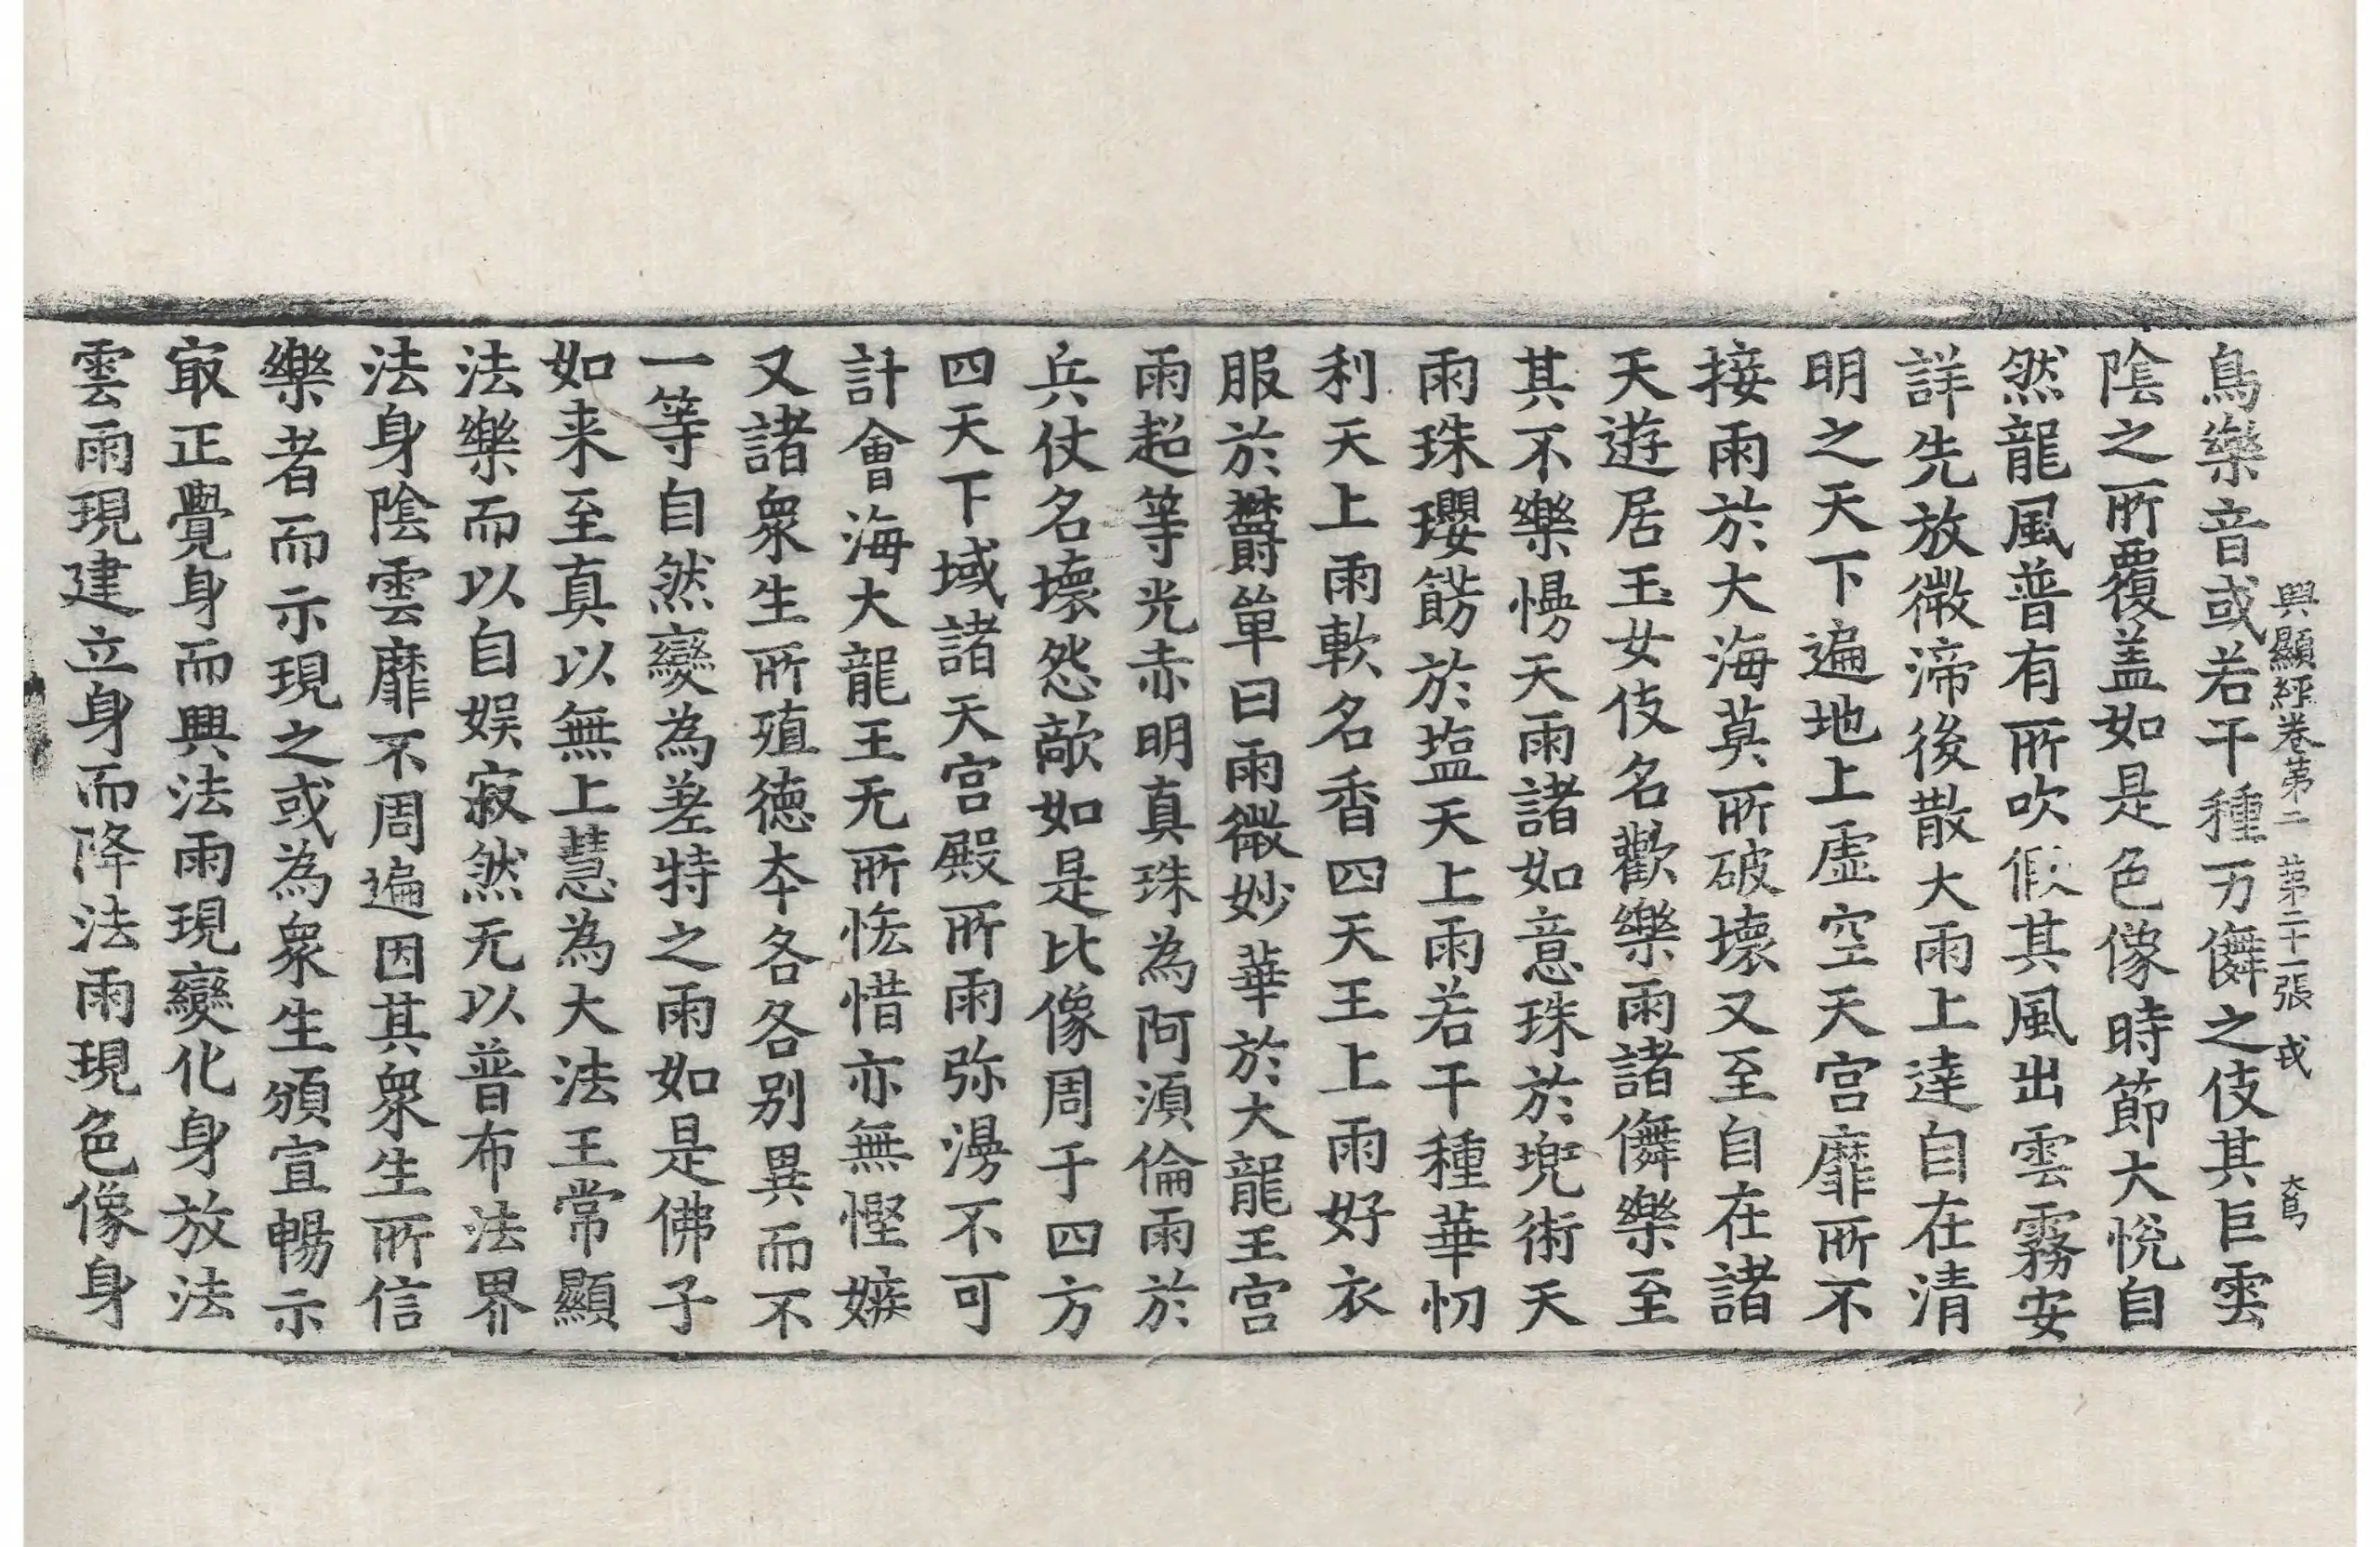 興顯經卷第二 第二十一張 戎 大鳥
鳥樂音或若干種万儛之伎其巨雲
陰之所覆盖如是色像時節大恱自
然龍風普有所吹假其風出雲霧安
詳先放微渧後散大雨上達自在清
明之天下遍地上虛空天宮靡所不
接雨於大海莫所破壞又至自在諸
天遊居玉女伎名歡樂雨諸儛樂至
其不樂慢天雨諸如意珠於兜術天
雨珠瓔餝於塩天上雨若干種華忉
利天上雨軟名香四天王上雨好衣
服於欝單曰雨微妙華於大龍王宮
雨超等光赤明真珠為阿湏倫雨於
兵仗名壞怨敵如是比像周于四方
四天下域諸天宮殿所雨弥漫不可
計會海大龍王无所恡惜亦無慳嫉
又諸衆生所殖徳夲各各别異而不
一等自然變為差特之雨如是佛子
如来至真以無上慧為大法王常顯
法樂而以自娱寂然无以普布法界
法身陰雲靡不周遍因其衆生所信
樂者而示現之或為衆生頒宣暢示
㝡正覺身而興法雨現變化身放法
雲雨現建立身而降法雨現色像身